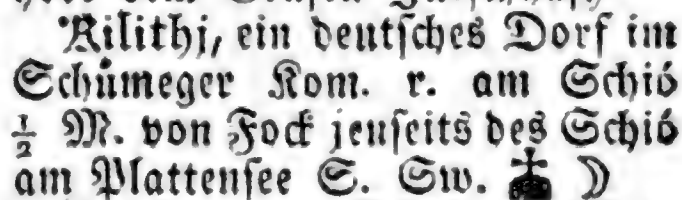 Kilithj, ein deutsches Dorf im
Schůmeger Kom. r. am Schió
½ M. von Fock jenseits des Schió
am Plattensee S. Sw. ☽